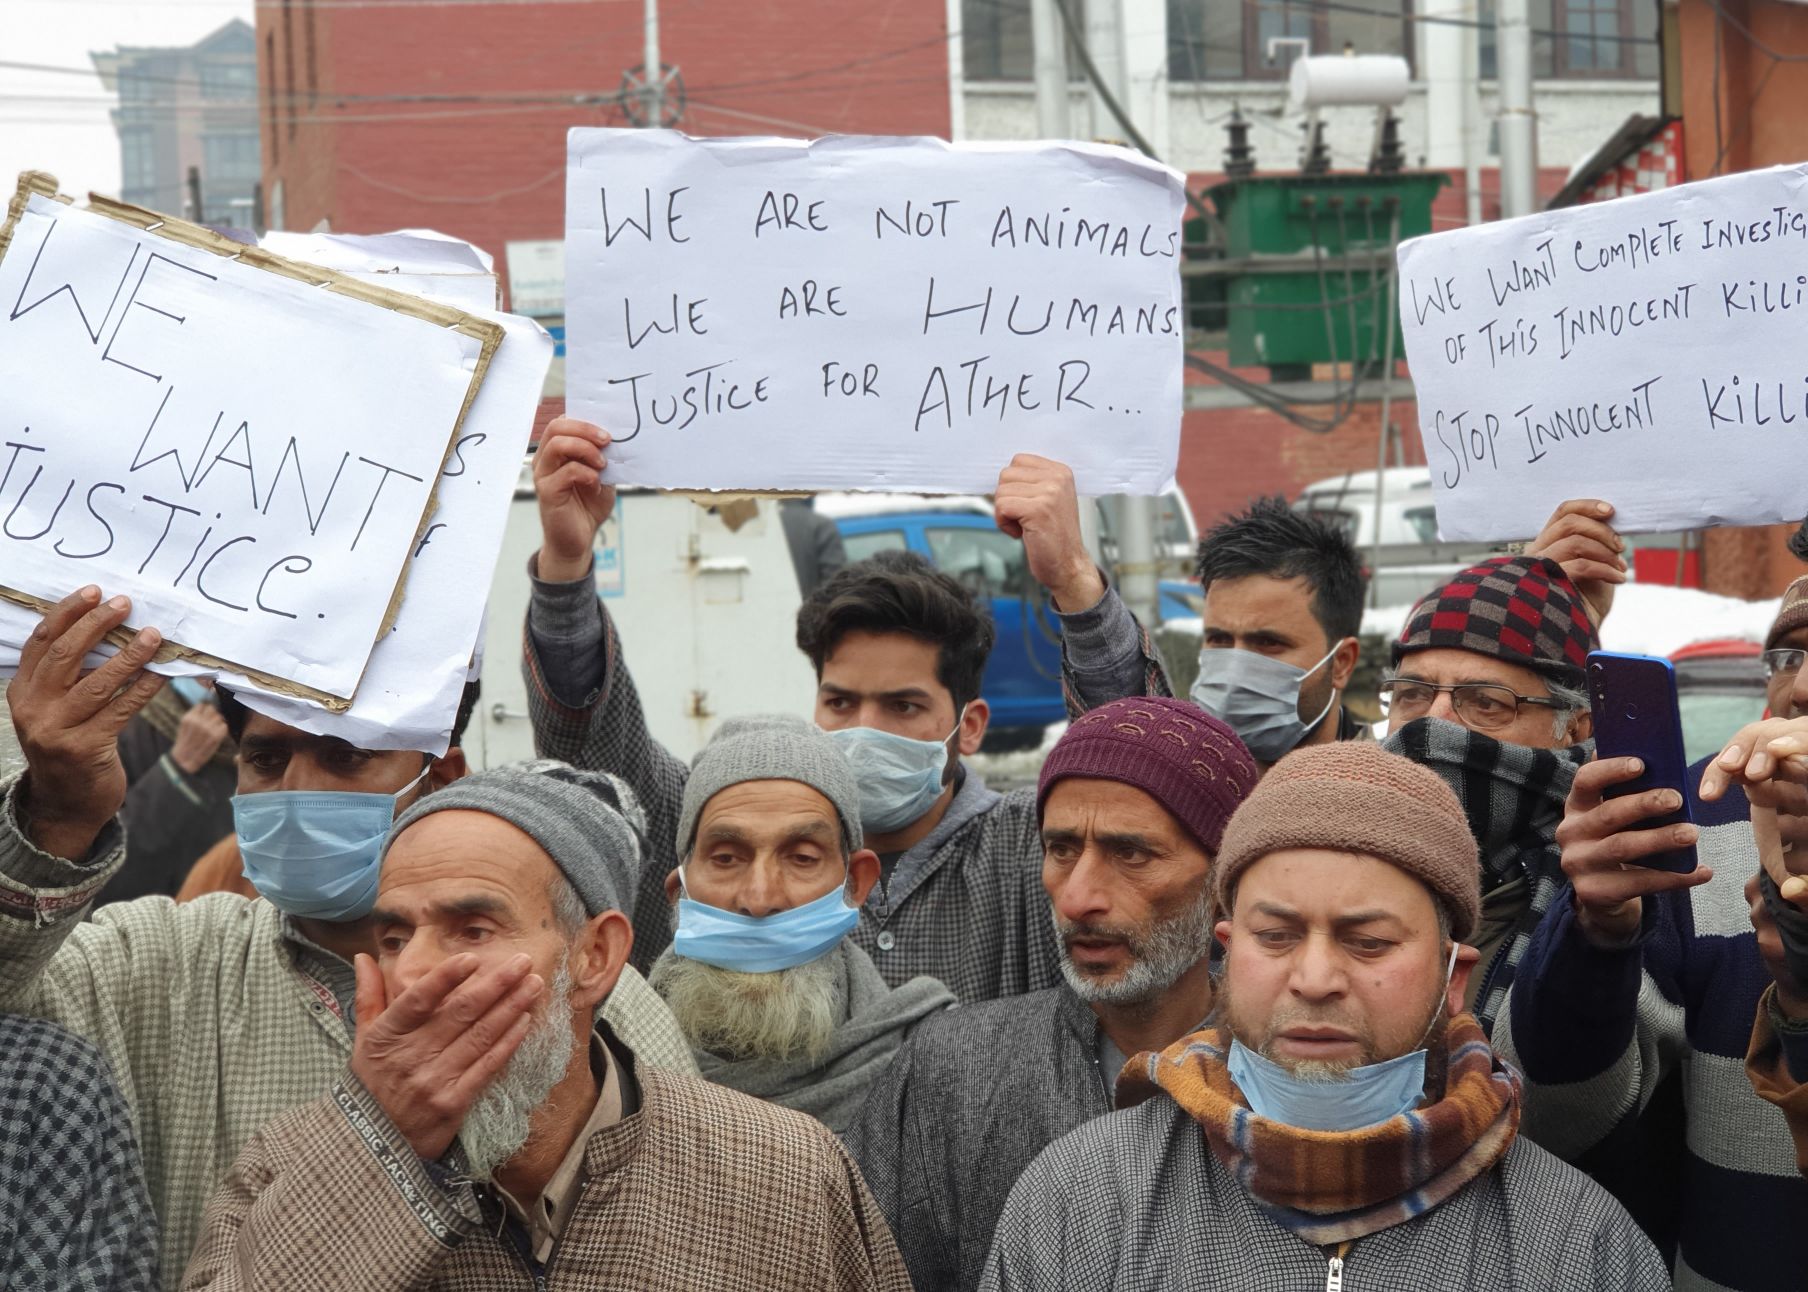 WE
WANT
JUSTiCe.
S.
f
WE ARE NOT ANiMALS
WE ARE HUMANS.
JUSTiCE FOR ATHER...
WE WANT COMPLETE INVESTIG
OF THIS INNOCENT KiLLi
STOP INNOCENT KiLLi
CLASSIC JACKETING